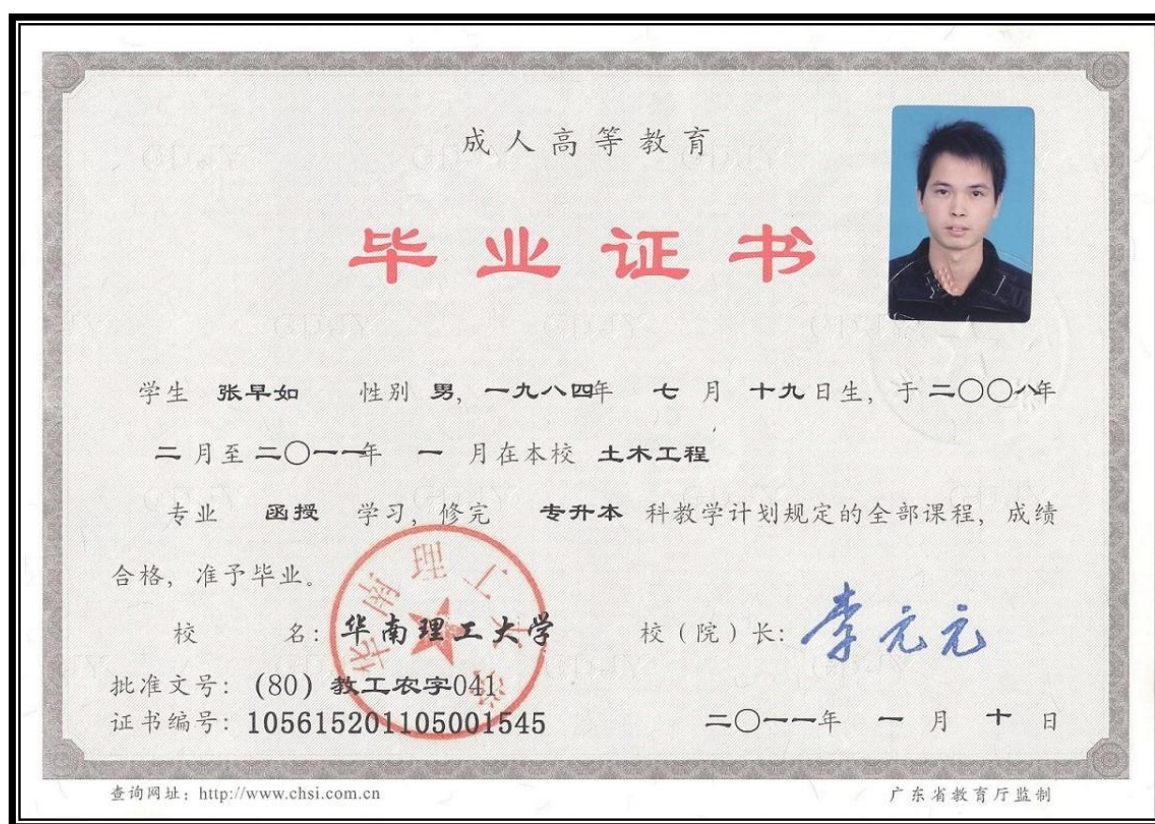 成人高等教育
毕业证书
学生 张早如 性别 男，一九八四年 七 月 十九日生，于二〇〇八年
二 月至 二〇一一年 一 月在本校 土木工程
专业 函授 学习，修完 专升本 科教学计划规定的全部课程，成绩
合格，准予毕业。
校 名：华南理工大学 校（院）长：李元元
批准文号：(80) 教工农字041
证书编号：105615201105001545 二〇一一年 一 月 十 日
查询网址：http://www.chsi.com.cn 广东省教育厅监制
华南理工大学